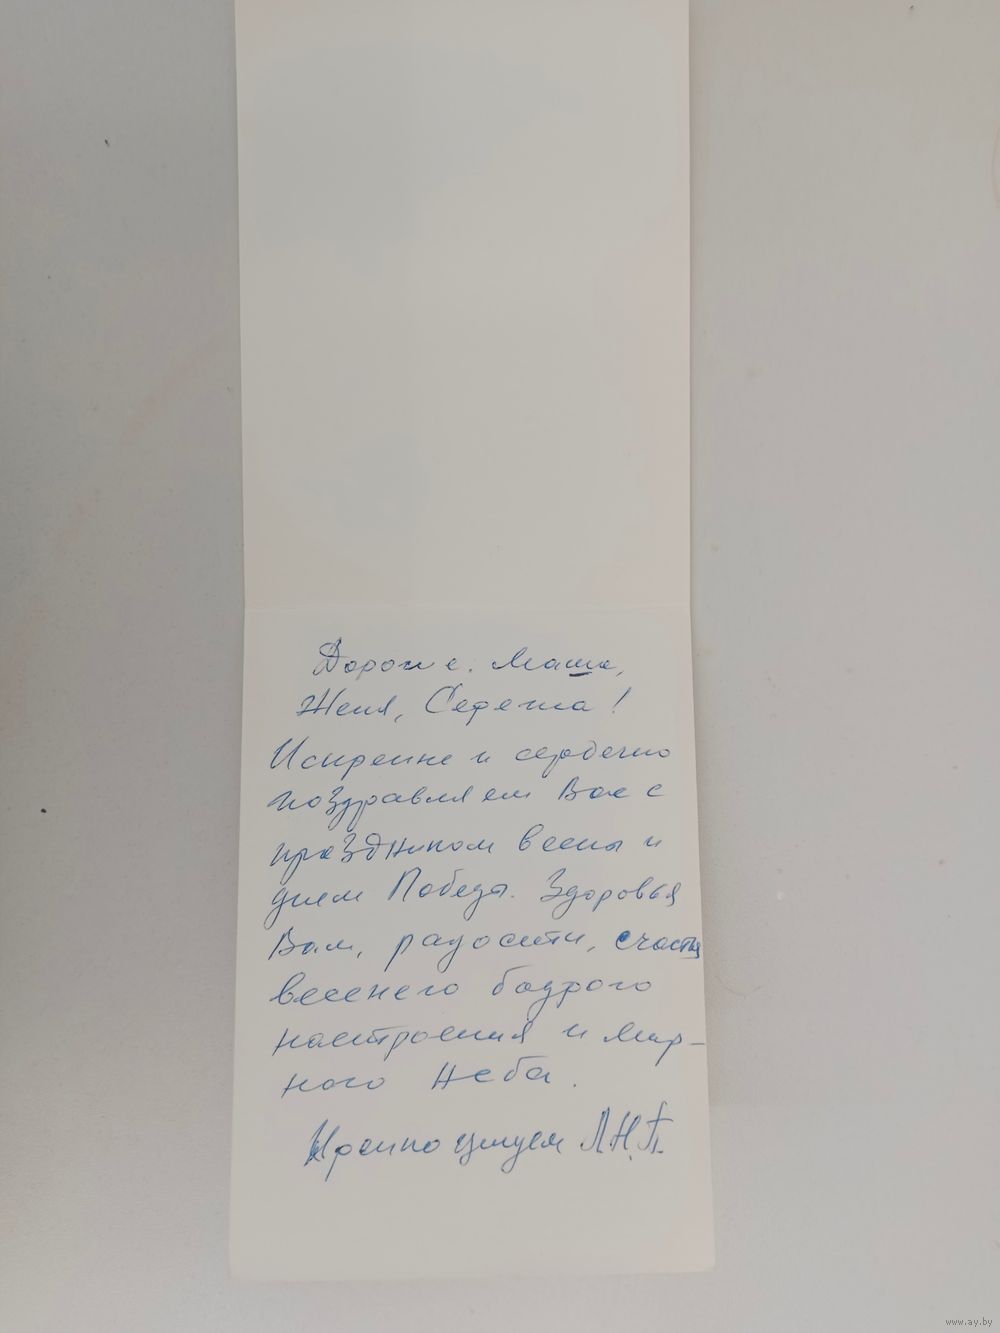 Дорогие. Маша,
Женя, Сережа!
Искренне и сердечно
поздравляем Вас с
праздником весны и
днем Победы. Здоровья
Вам, радости, счастья
весенего бодрого
настроения и мир-
ного неба.
Крепко целуем Л.Н.П.
www.ay.by